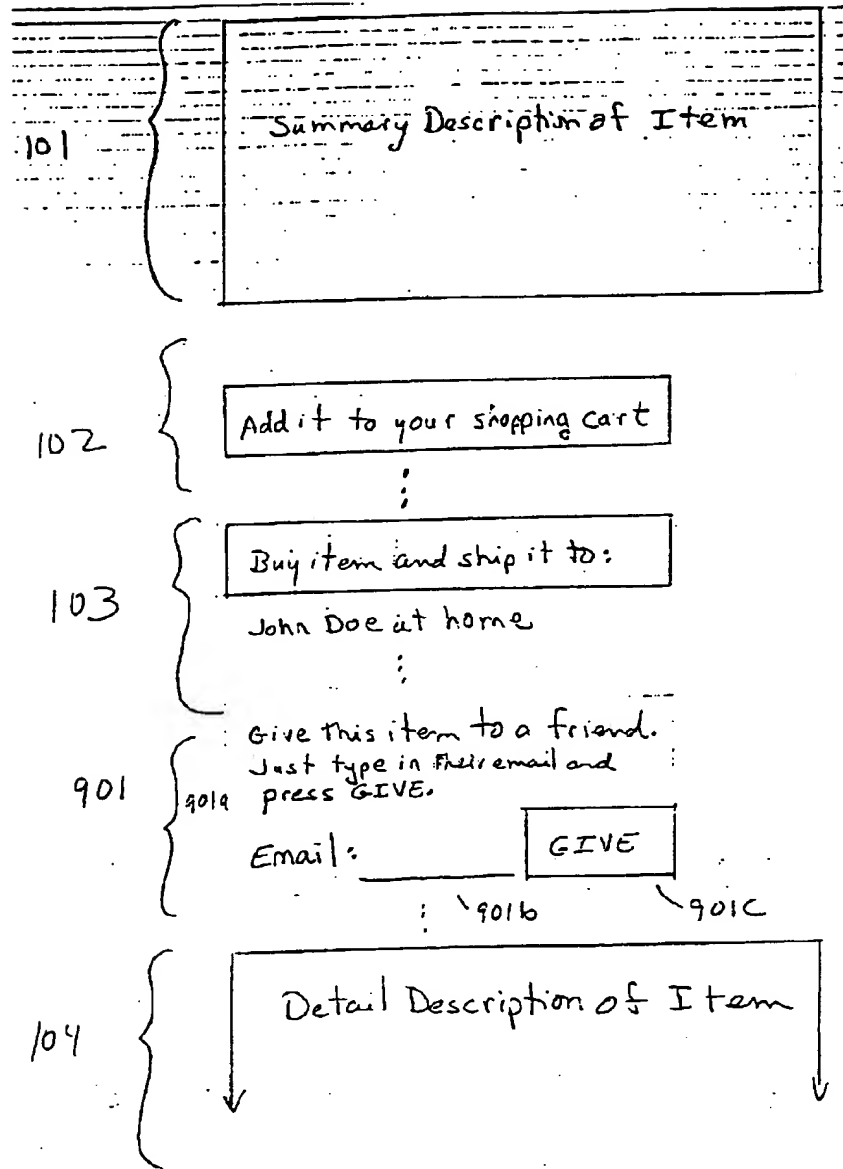 Summary Description of Item
101
Add it to your shopping cart
102
Buy item and ship it to:
103
John Doe at home
Give this item to a friend.
Just type in their email and
901
901a
press GIVE.
Email:
GIVE
901b
901c
Detail Description of Item
104